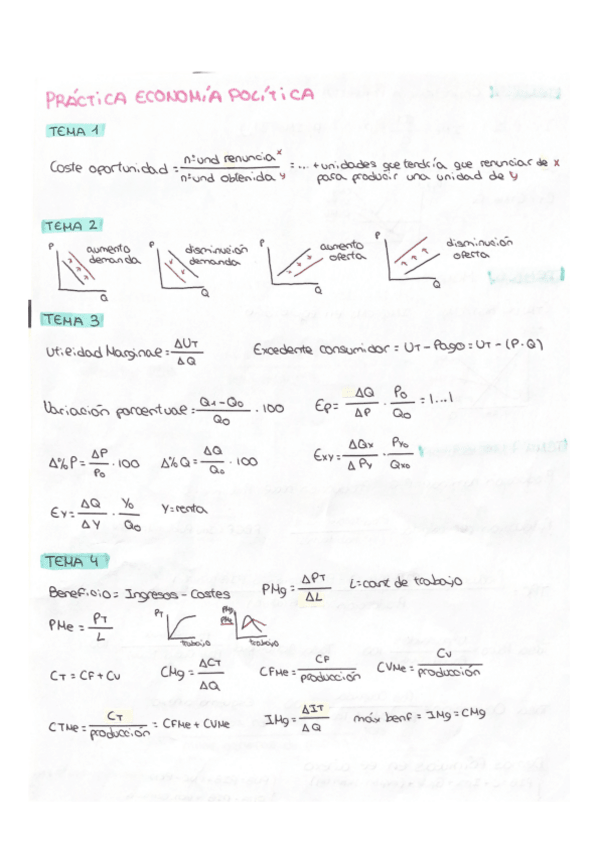 PRÁCTICA ECONOMÍA POLÍTICA
TEMA 1
Coste oportunidad = nº und renuncia x / nº und obtenida y = ... + unidades que tendría que renunciar de x
para producir una unidad de y
TEMA 2
P aumento demanda Q
P disminución demanda Q
P aumento oferta Q
P disminución oferta Q
TEMA 3
Utilidad Marginal = ΔUT / ΔQ Excedente consumidor = UT - Pago = UT - (P·Q)
Variación porcentual = Q1 - Q0 / Q0 · 100 Ep = ΔQ / ΔP · P0 / Q0 = |...|
Δ%P = ΔP / P0 · 100 Δ%Q = ΔQ / Q0 · 100 Exy = ΔQx / ΔPy · Py0 / Qx0
Ey = ΔQ / ΔY · Y0 / Q0 Y = renta
TEMA 4
Beneficio = Ingresos - Costes PMg = ΔPT / ΔL L = cant de trabajo
PMe = PT / L PT trabajo PMg PMe trabajo
CT = CF + CV CMg = ΔCT / ΔQ CFMe = CF / producción CVMe = CV / producción
CTMe = CT / producción = CFMe + CVMe IMg = ΔIT / ΔQ máx benf = IMg = CMg